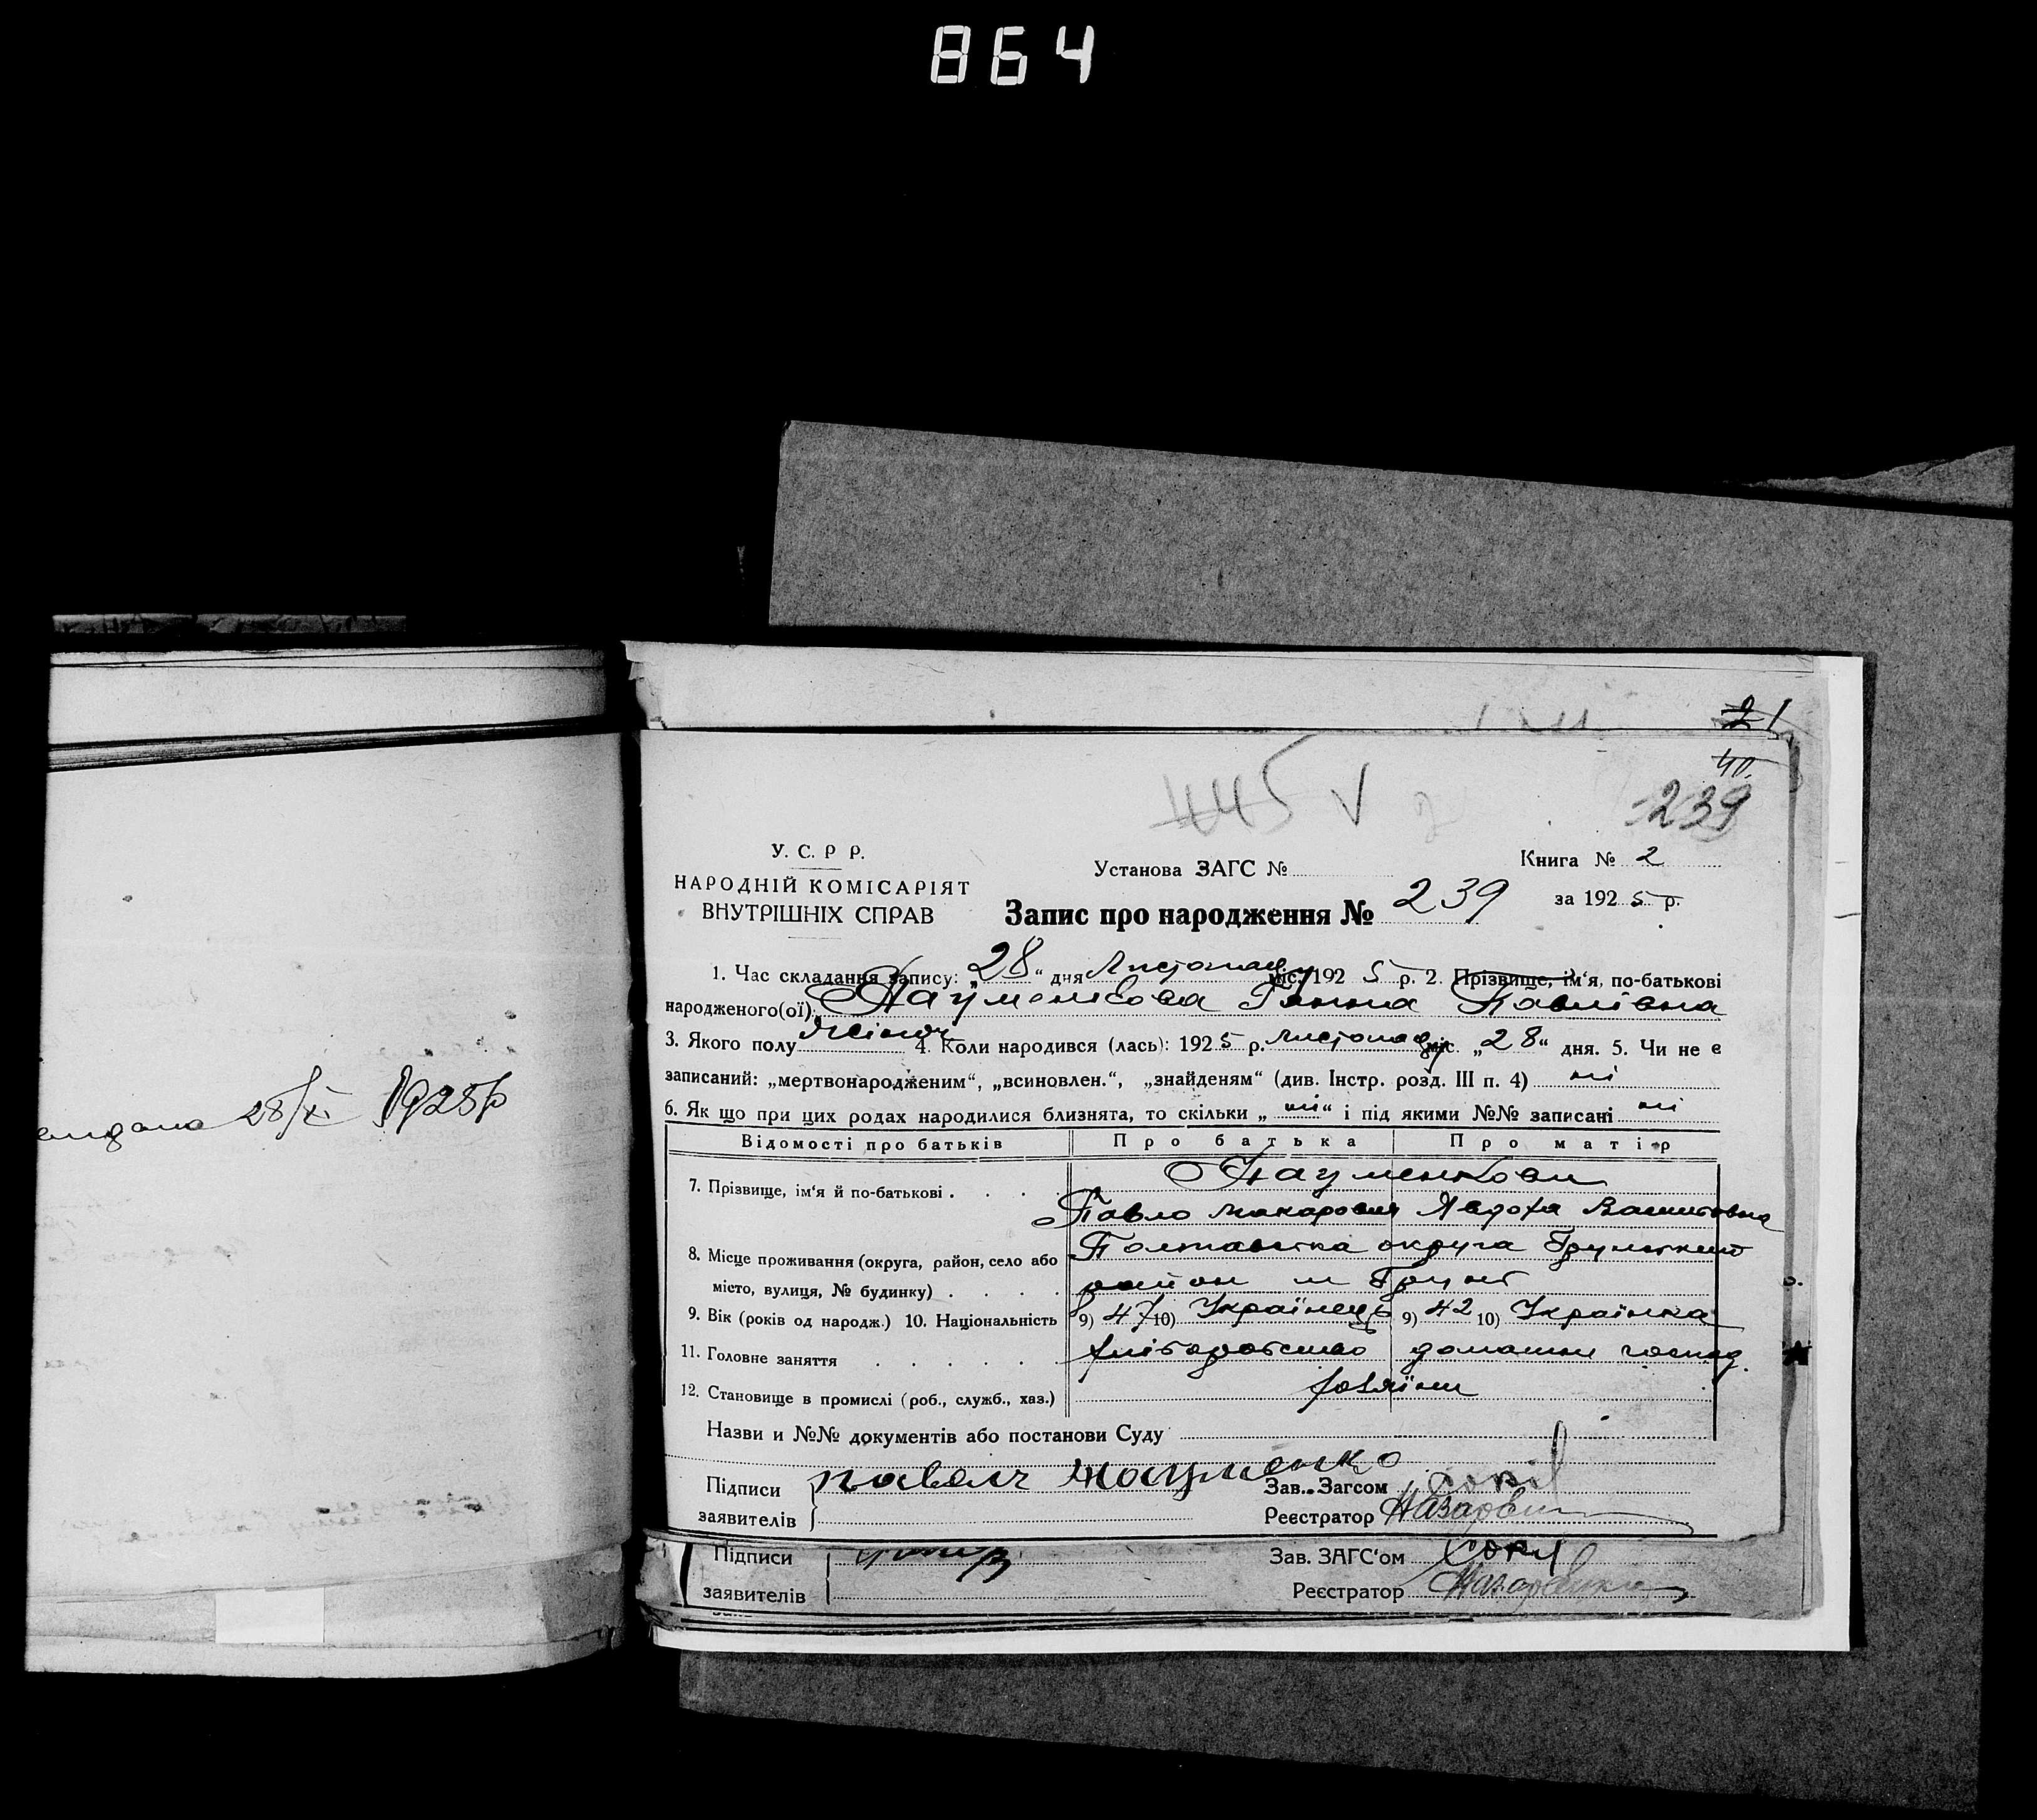 864
28/XI 1925р
21
40.
239
445 V
У. С. Р Р.
НАРОДНІЙ КОМІСАРІЯТ
ВНУТРІШНІХ СПРАВ
Установа ЗАГС №
Книга № 2
за 1925 р.
Запис про народження № 239
1. Час складання запису: „28“ дня Листопаду міс. 1925 р. 2. Прізвище, ім‘я, по-батькові
народженого(ої): Науменкова Ганна Павлівна
3. Якого полу жіноч 4. Коли народився (лась): 1925 р. листопаду міс. „28“ дня. 5. Чи не є
записаний: „мертвонародженим“, „всиновлен.“, „знайденям“ (див. Інстр. розд. III п. 4) ні
6. Як що при цих родах народилися близнята, то скільки „ні“ і під якими №№ записані ні
Відомості про батьків Про батька Про матір
7. Прізвище, ім‘я й по-батькові . . . . Науменкови
Павло Макарович Явдоха
8. Місце проживання (округа, район, село або Полтавська округа Грунський
місто, вулиця, № будинку) . . . . район м Грунь
9. Вік (років од народж.) 10. Національність 9) 47 10) Українець 9) 42 10) Українка
11. Головне заняття . . . . . хліборобство домашнє господ.
12. Становище в промислі (роб., служб., хаз.) хазяїни
Назви и №№ документів або постанови Суду
Підписи павелъ Науменко Зав. Загсом Сокіл
заявителів Реєстратор
Підписи Зав. ЗАГС‘ом
заявителів Реєстратор